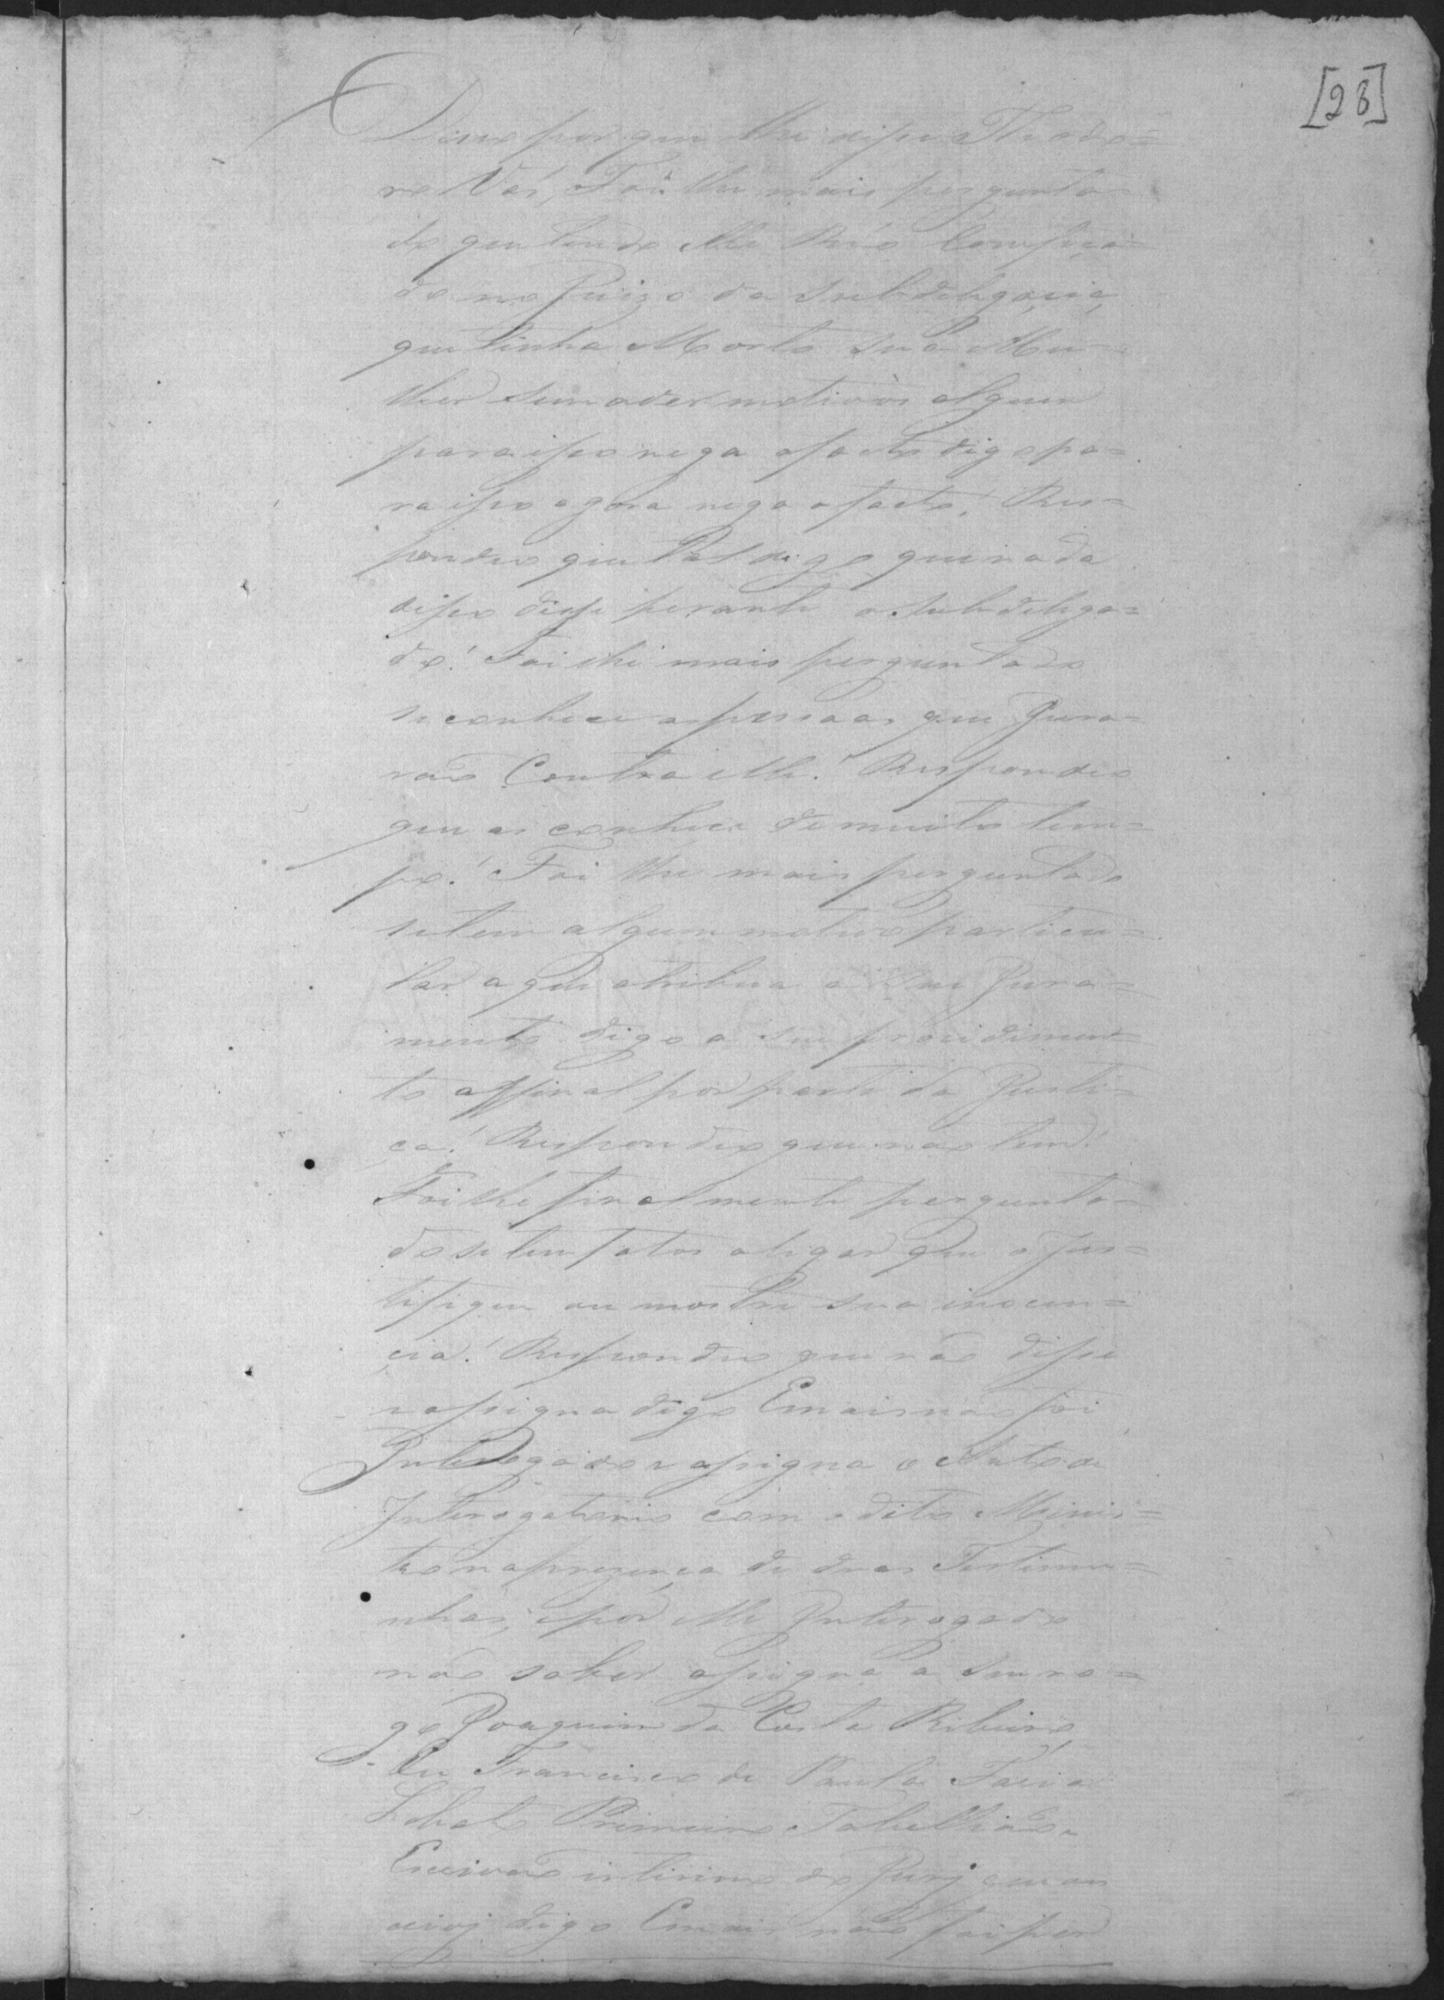 [28]
porque lhe disse Theodo=
ro Vás, Foi lhe mais pergunta=
do que tendo elle Réo Confeça=
do no Juizo da Subdelegacia,
que tinha Morto sua Mu=
lher sem aver motivos algum
para isso nega o facto digo pa=
ra isso agora nega o facto! Res=
pondeo que tal digo que nada
disso disse perante o Subdelega=
do! Foi lhe mais perguntado
se conhece as pessoas que Jura=
rão Contra elle! Respondeo
que as conhece de muito tem=
po! Foi lhe mais perguntado
se tem algum motivo particu=
lar a que atribua o seu Jura=
mento digo o seu procedimen=
to affinal por parte da Justi=
ça! Respondeo que não tem!
Foi lhe finalmente pergunta=
do se tem fatos alegar que o Jus=
tifique ou mostre sua inocen=
cia! Respondeo que não disse
e assigna digo Emais não foi
Interogado e assigna o Auto de
Interogatorio com o dito Menis=
tro na prezença de duas Testimu=
nhas, e por elle Interogado
não saber assigna a seu ro=
go Joaquim da Costa Ribeiro,
Eu Francisco de Paula Faria
Lobato Primeiro Tabellião e
Escrivão interino do Jury que es
crivi digo Emais não foi per